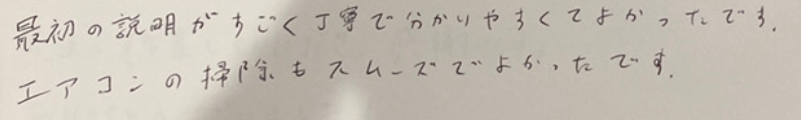 最初の説明がすごく丁寧で分かりやすくてよかったです.
エアコンの掃除もスムーズでよかったです.